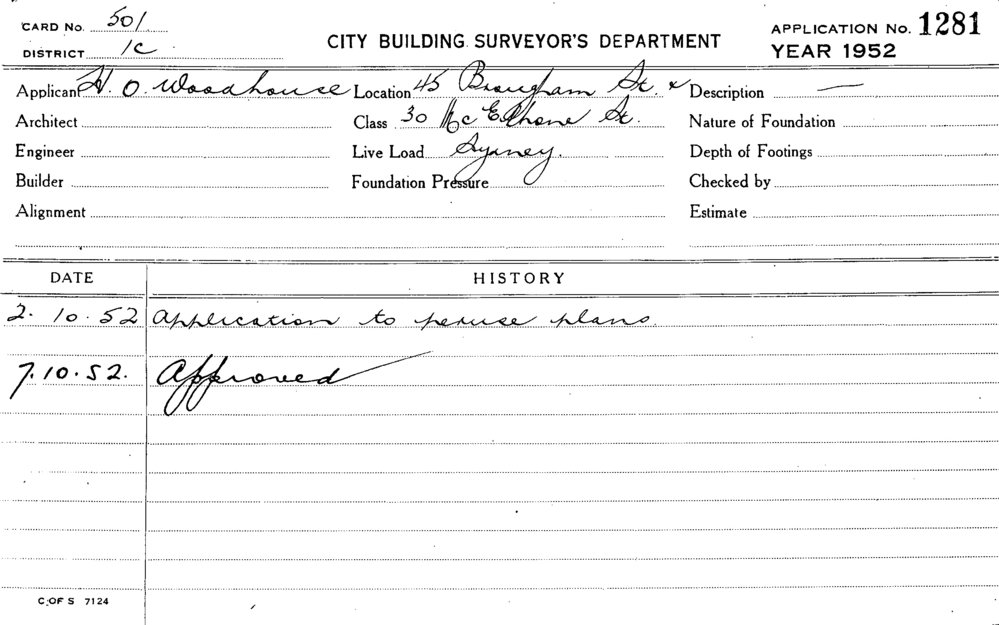 CARD No. 501
DISTRICT 1C
CITY BUILDING SURVEYOR'S DEPARTMENT
APPLICATION No. 1281
YEAR 1952
Applicant H. O. Woodhouse Location 45 Brougham St. & Description —
Architect Class 30 McElhone St. Nature of Foundation
Engineer Live Load Sydney. Depth of Footings
Builder Foundation Pressure Checked by
Alignment Estimate
DATE HISTORY
2.10.52 Application to peruse plans.
7.10.52. Approved
C. OF S 7124